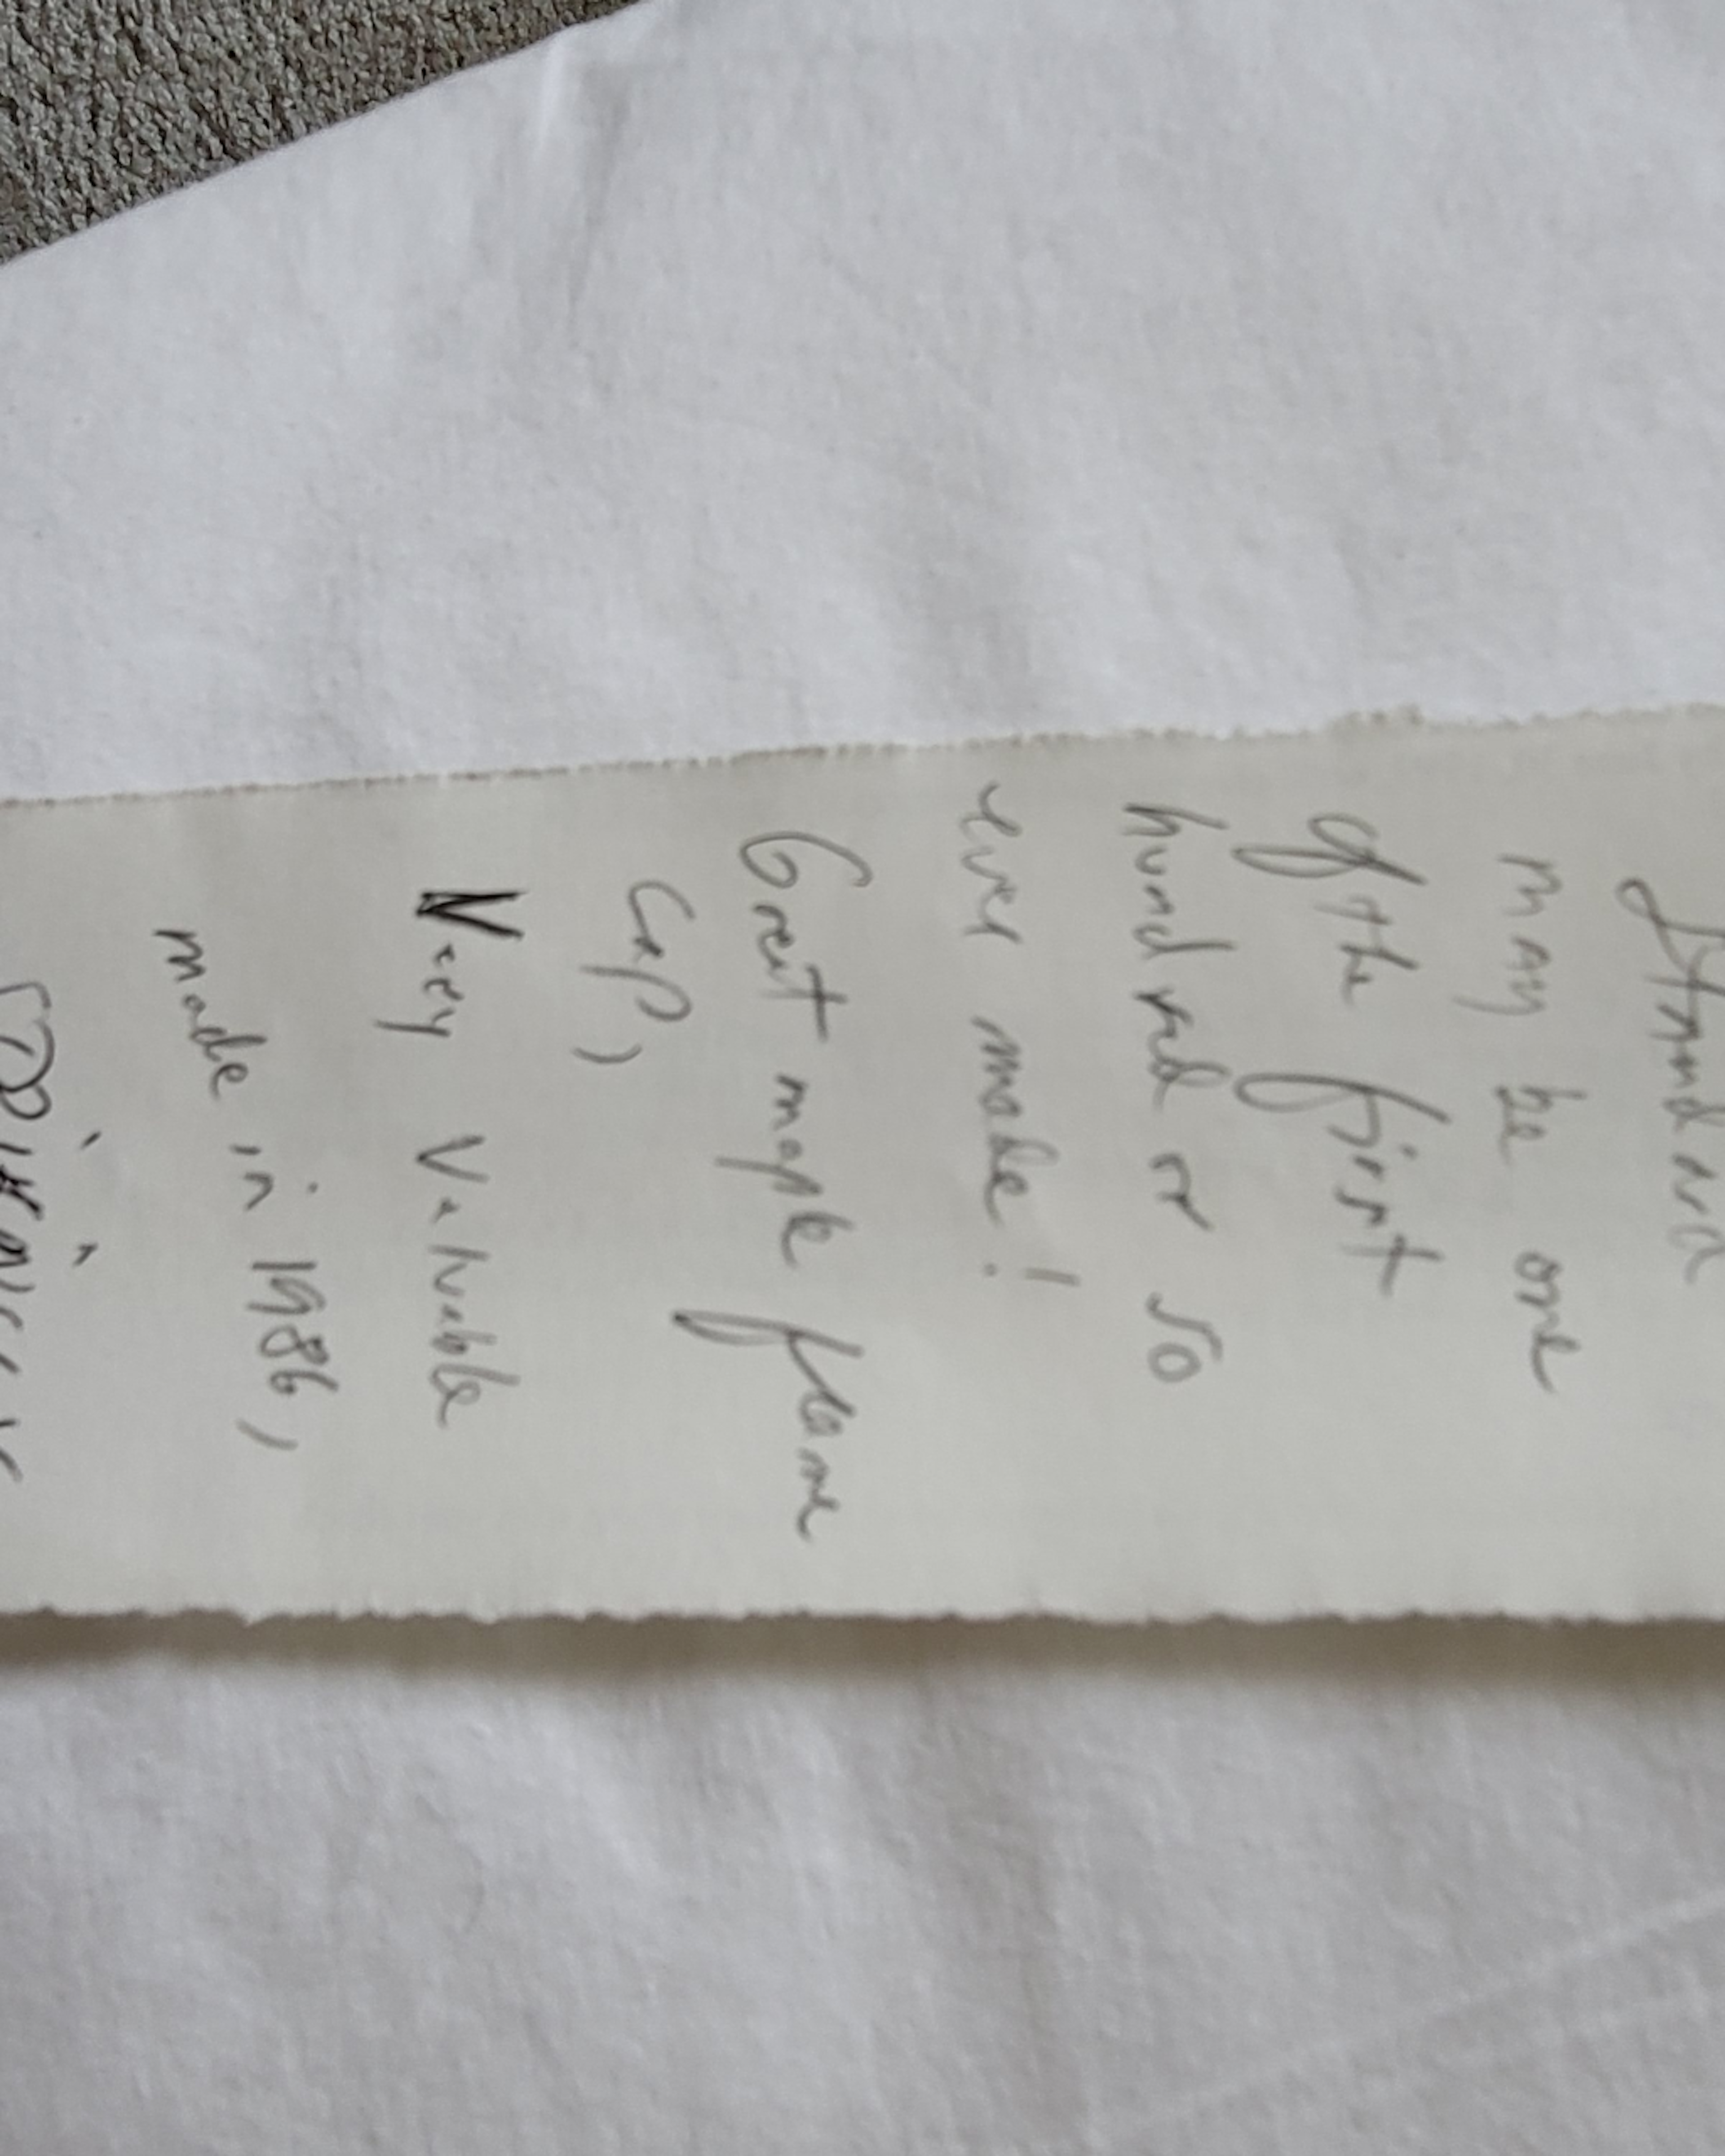 Standard
may be one
of the first
hundred or so
ever made!
Great maple flame
cap,
Very Valuable
made in 1986,